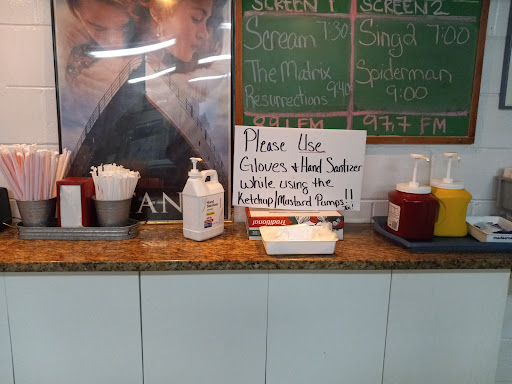 SCREEN 1
SCREEN 2
Scream 7:30
Sing 2 7:00
The Matrix
Resurrections 9:40
Spiderman
9:00
89.1 FM
97.7 FM
Please Use
Gloves & Hand Sanitizer
while using the
Ketchup/Mustard Pumps!!
Traditional
AN